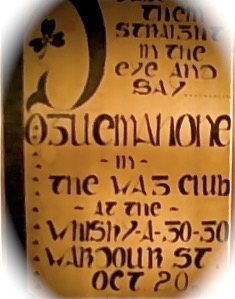 THEM
STRAIGHT
IN THE
EYE AND
SAY.......
POGUEMAHONE
- IN -
THE WAG CLUB
- AT THE -
WHISKY-A-GO-GO
WARDOUR ST.
OCT 20